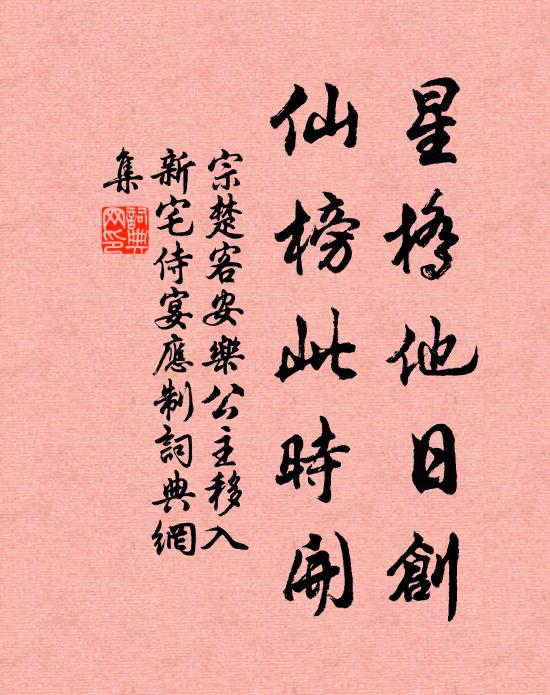 星橋他日創
仙榜此時開
宗楚客安樂公主移入
新宅侍宴應制詞典網
集
詞典
网印